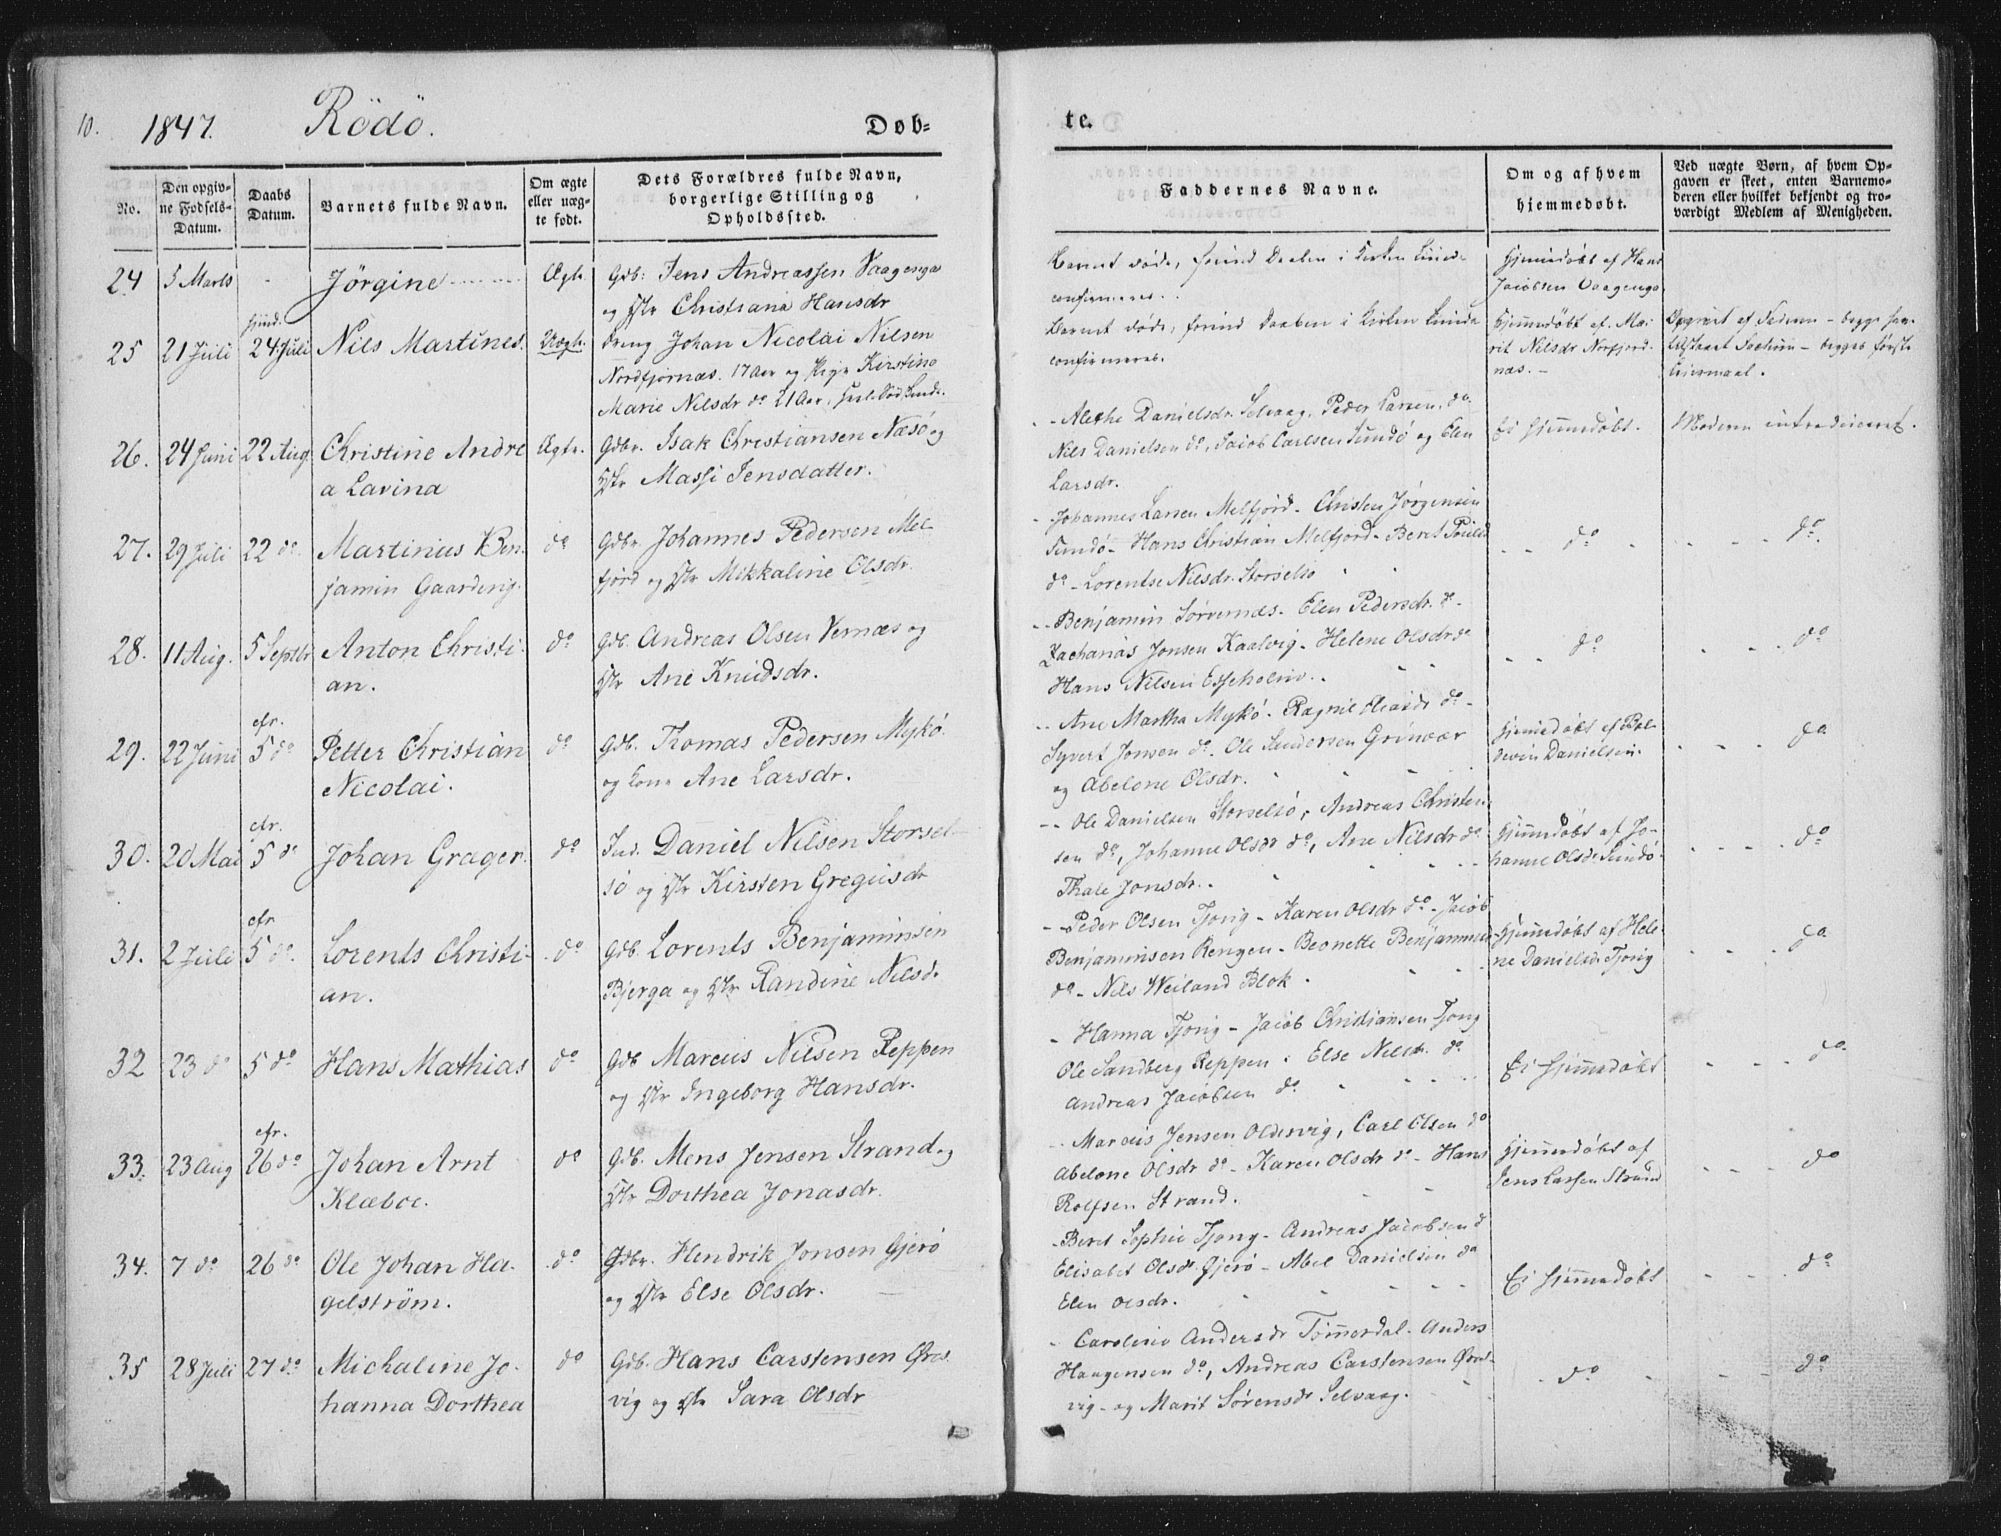 10. 1847. Rödö. Døb-
te.
No.
Den opgiv-
ne Fødsels-
Datum.
Daabs
Datum.
Barnets fulde Navn.
Om ægte
eller uæg-
te født.
Dets Forældres fulde Navn,
borgerlige Stilling og
Opholdssted.
Faddernes Navne.
Om og af hvem
hjemmedøbt.
Ved uægte Børn, af hvem Op-
gaven er skeet, enten Barnemo-
deren eller hvilket bekjendt og tro-
værdigt Medlem af Menigheden.
24 5 Marts - Jörgine Ægte Gdb: Jens Andreassen Vaagenga
og Christiana Hansdr
Barnet døde, forind Daaben i Kirken kunde
confirmeres.
Hjemmedøbt af Hans
Jacobsen Vaagenga
25 21 Juli hjmd. 24 Juli Nils Martines. Uægte. Dreng Johan Nicolai Nilsen
Nordfjornæs. 17 Aar og Pige Kirstina
Marie Nilsdr do 21 Aar,
Barnet døde, forind Daaben i Kirken kunde
confirmeres.
Hjemmedøbt af Ma-
rit Nilsdr Norfjord-
næs. -
Opgivet af Faderen - begge
- begges første
Leiermaal.
26. 24 Juni 22 Aug Christine Andre
a Lavina
Ægte. Gdbr. Isak Christiansen Næsö og
Massi Jensdatter.
- Alethe Danielsdr. Selvaag, Peder Larsen do
Nils Danielsen do, Jacob Carlsen Sundö og Elen
Larsdr.
Ei hjemmedøbt. Moderen introduceret.
27. 29 Juli 22 do Martinius Ben-
jamin Gaarding.
do Gdbr. Johannes Pedersen Mel-
fjord og Mikkaline Olsdr.
- Johannes Larsen Melfjord - Christen Jörgensen
Sundö - Hans Christian Melfjord - Beret
do - Lorentse Nilsdr. Storselsö
do do.
28. 11 Aug. 5 Septbr Anton Christi-
an.
do Gdb. Andreas Olsen Vernæs og
Ane Knudsdr.
- Benjamin Sörvernæs - Elen Pedersdr. do -
Zacharias Jonsen Kaalvig - Helene Olsdr do
Hans Nilsen
do do
29. 22 Juni cfr. 5 do Petter Christian
Nicolai.
do Gdb. Thomas Pedersen Mykö
og Kone Ane Larsdr.
- Ane Martha Mykö - Ragnil do -
Syvert Jonsen do. Ole Sandersen Grönaar
og Abelone Olsdr.
Hjemmedøbt af Bal-
devin Danielsen.
do
30. 20 Mai cfr. 5 do Johan Græger. do Ind. Daniel Nilsen Storsel-
sö og Kirsten Gregusdr
- Ole Danielsen Storselsö, Andreas Christen-
sen do, Johanne Olsdr do, Ane Nilsdr do
Thale Jonsdr.
Hjemmedøbt af Jo-
hanne Olsdr Sundö
do
31. 2 Juli cfr 5 do. Lorents Christi-
an.
do Gdb. Lorents Benjaminsen
Bjerga og Randine Nilsd.
- Peder Olsen Tjong - Karen Olsdr do - Jacob
Benjaminsen Rengen - Beonette Benjaminsd
do - Nils Weiland Blok.
Hjemmedøbt af Hele-
ne Danielsd. Tjong
do
32 23 do 5 do Hans Mathias do Gdb Marcus Nilsen Reppen
og Ingeborg Hansdr.
- Hanna Tjong - Jacob Christiansen Tjong
Ole Sandberg Reppen, Else Nilsdr. do
Andreas Jacobsen do
Ei hjemmedøbt do
33. 23 Aug cfr. 26 do Johan Arnt
Klæboe.
do Gdb. Mens Jensen Strand og
Dorthea Jonasdr.
- Marcus Jensen Oldervig, Carl Olsen do
Abelone Olsdr do - Karen Olsdr do - Hans
Rolfsen Strand.
Hjemmedøbt af
Jens Larsen Strand
do
34. 7 do 26 do Ole Johan Ha-
gelström.
do Gdbr. Hendrik Jonsen Gjerö
og Else Olsdr.
- Beret Sophie Tjong - Andreas Jacobsen do
Elisabet Olsdr. Gjerö - Abel Danielsen do
Elen Olsdr.
Ei hjemmedøbt do
35 28 Juli 27 do Michaline Jo-
hanna Dorthea
do Gdb. Hans Carstensen Øres-
vig og Sara Olsdr
- Caroline Andersdr Tömmerdal - Anders
Haagensen do, Andreas Carstensen Øres-
vig - og Marit Sörensdr Selvaag.
do do